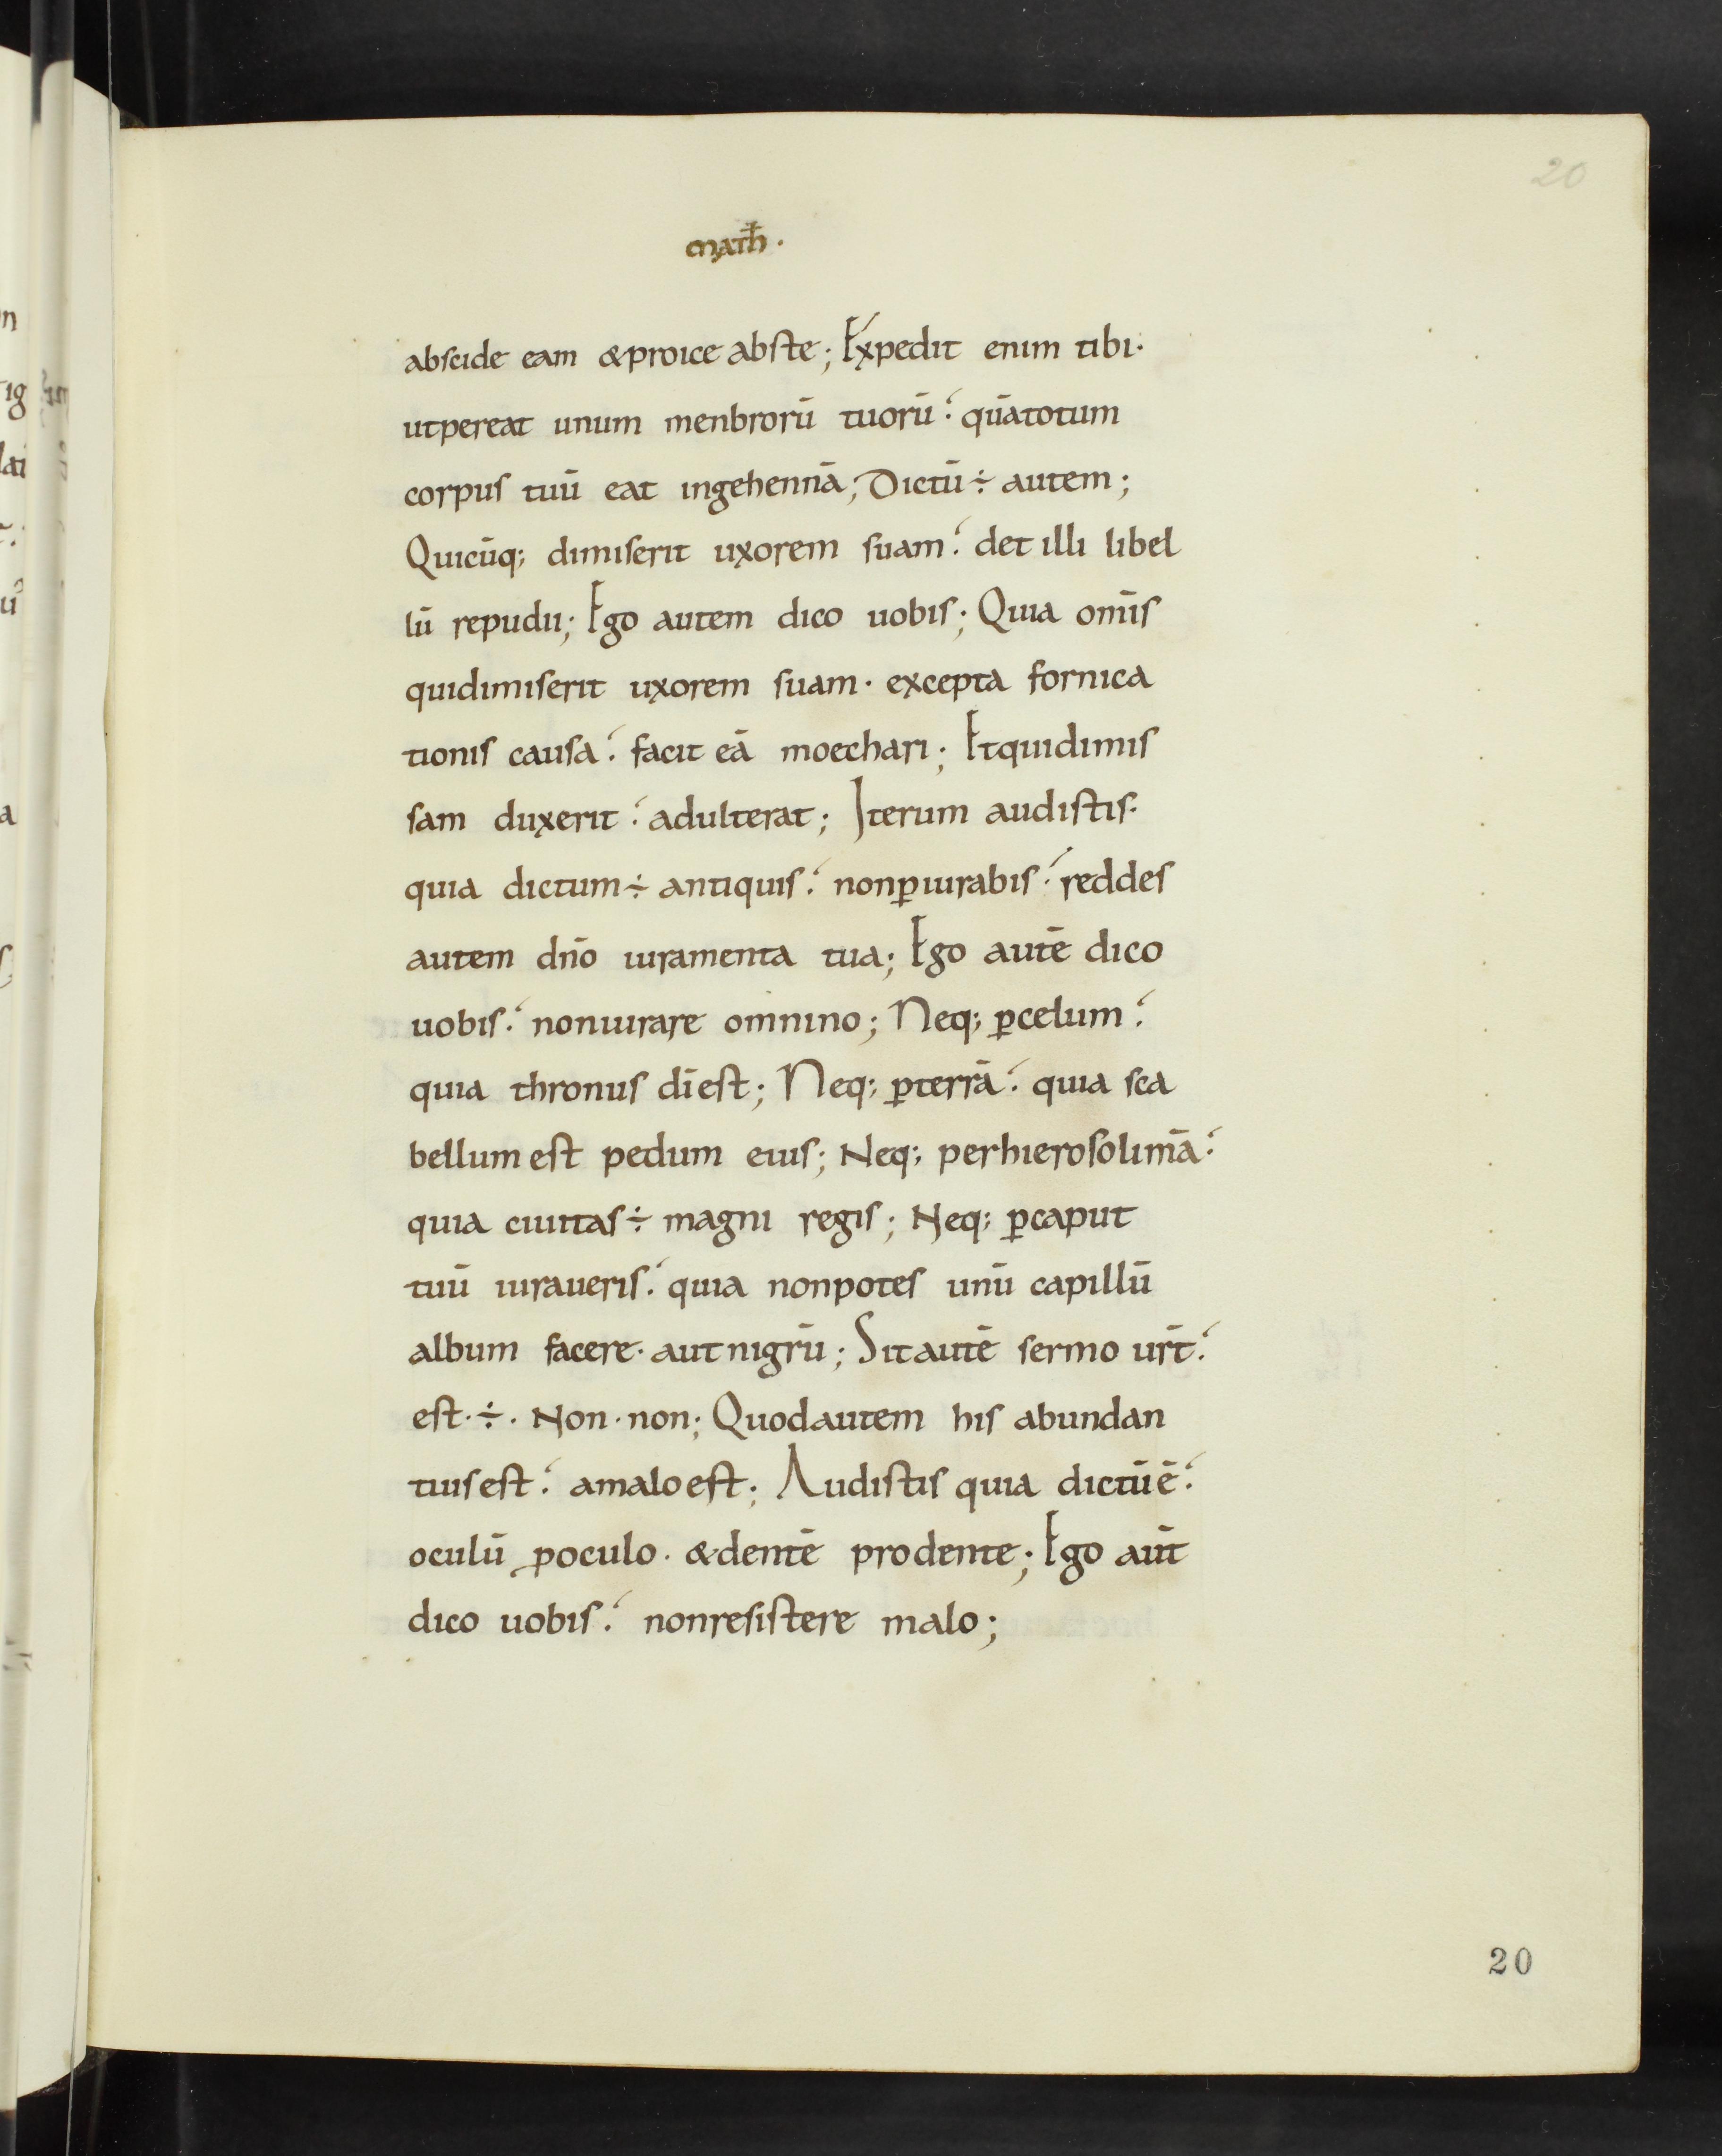 20
math̄·
abscide eam &proice abste; Expedit enim tibi·
utpereat unum menbrorū tuorū· quātotum
corpus tuū eat ingehennā; Dictū ÷ autem;
Quicūq; dimiserit uxorem suam· det illi libel
lū repudii; Ego autem dico uobis; Quia om̄is
quidimiserit uxorem suam· excepta fornica
tionis causa· facit eā moechari; Etquidimis
sam duxerit· adulterat; Iterum audistis·
quia dictum ÷ antiquis· nonꝑiurabis· reddes
autem dn̄o iuramenta tua; Ego autē dico
uobis· noniurare omnino; Neq; ꝑcelum·
quia thronus dīest; Neq; ꝑterrā· quia sca
bellum est pedum eius; Neq; perhierosolimā·
quia ciuitas ÷ magni regis; Neq; ꝑcaput
tuū iuraueris· quia nonpotes unū capillū
album facere· aut nigrū; Sitautē sermo ur̄t·
est· ÷· Non· non; Quodautem his abundan
tiusest· amaloest; Audistis quia dictūē·
oculū ꝓoculo· &dentē prodente; Ego aūt
dico uobis· nonresistere malo;
20